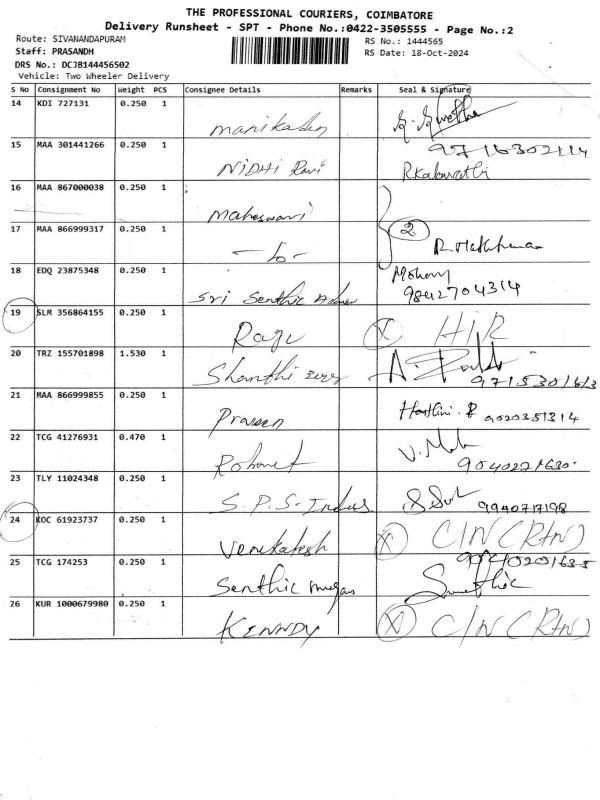 THE PROFESSIONAL COURIERS, COIMBATORE
Delivery Runsheet - SPT - Phone No.:0422-3505555 - Page No.:2
Route: SIVANANDAPURAM
RS No.: 1444565
Staff: PRASANDH
RS Date: 18-Oct-2024
DRS No.: DCJB144456502
Vehicle: Two Wheeler Delivery
S No Consignment No Weight PCS Consignee Details Remarks Seal & Signature
14 KDI 727131 0.250 1
15 MAA 301441266 0.250 1 NIDHI Ravi
16 MAA 867000038 0.250 1 Maheswari
17 MAA 866999317 0.250 1 2
18 EDQ 23875348 0.250 1 Sri Senthil Mohan 9842704314
19 SLM 356864155 0.250 1 Raju X
20 TRZ 155701898 1.530 1 Shanthi
21 MAA 866999855 0.250 1 Praveen
22 TCG 41276931 0.470 1
23 TLY 11024348 0.250 1 S.P.S-Indus
24 KOC 61923737 0.250 1 Venkatesh X C/N (RTN)
25 TCG 174253 0.250 1 Senthil 9040201635
26 KUR 1000679980 0.250 1 KENNDY X C/N (RTN)